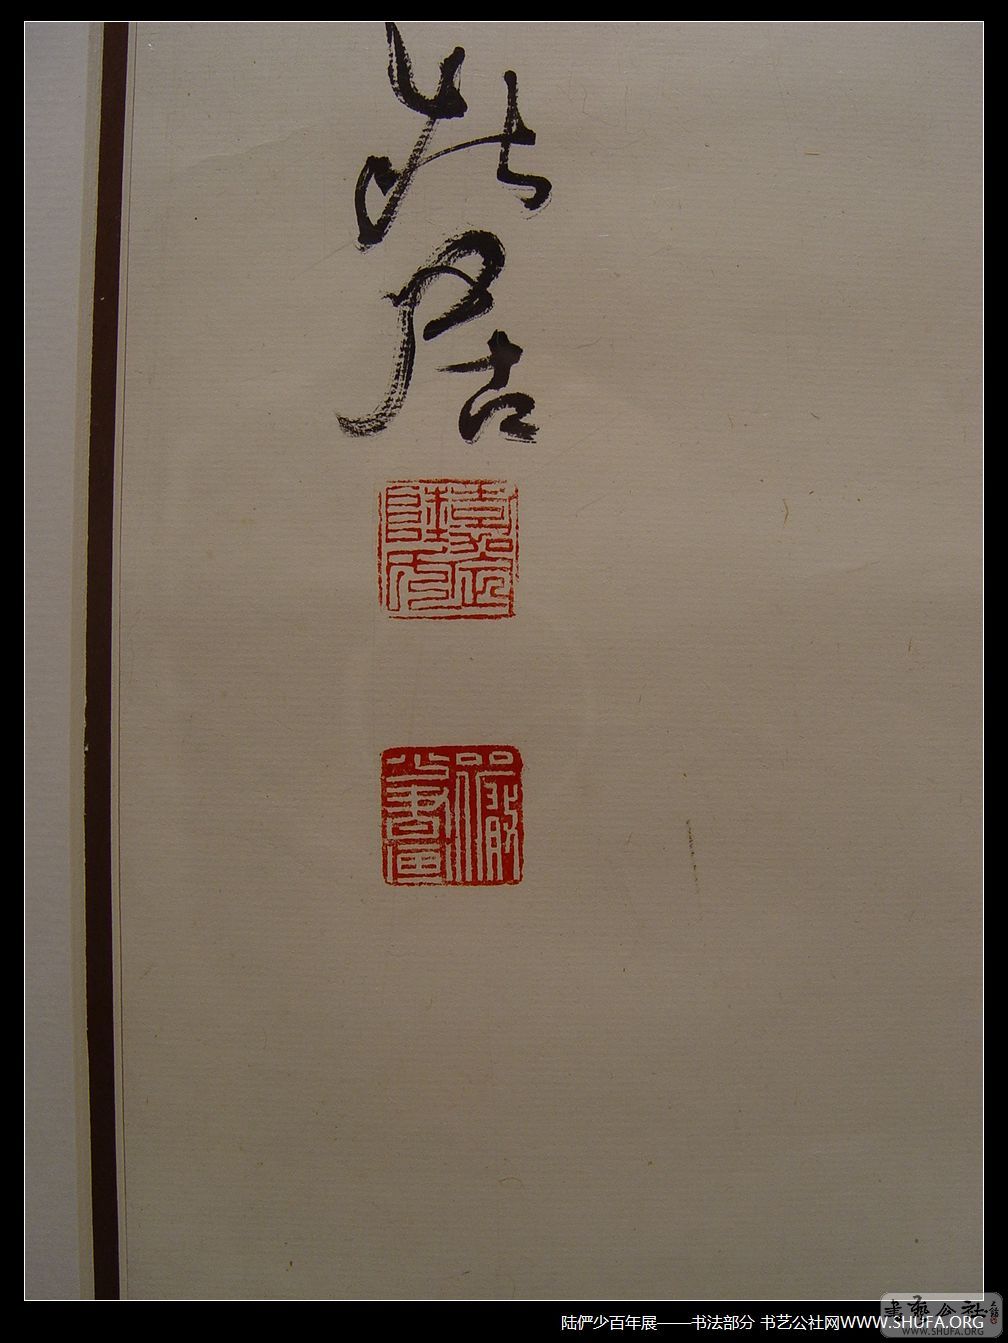 居
嘉定陸
儼少書画
陆俨少百年展——书法部分 书艺公社网WWW.SHUFA.ORG
书艺公社
WWW.SHUFA.ORG